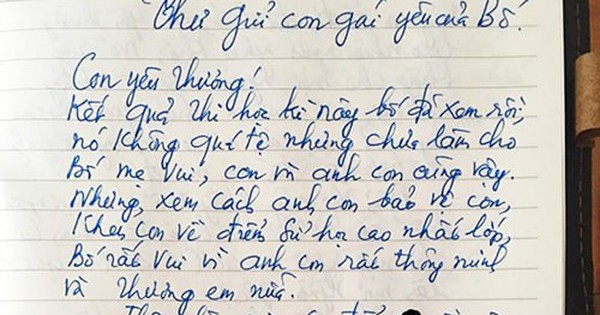 Thư gửi con gái yêu của Bố.
Con yêu thương!
Kết quả thi học kì này bố đã xem rồi,
nó không quá tệ nhưng chưa làm cho
Bố mẹ vui, con và anh con cũng vậy.
Nhưng, xem cách anh con bảo vệ con,
khen con về điểm sử học cao nhất lớp,
Bố rất vui vì anh con rất thông minh
và thương em nữa.